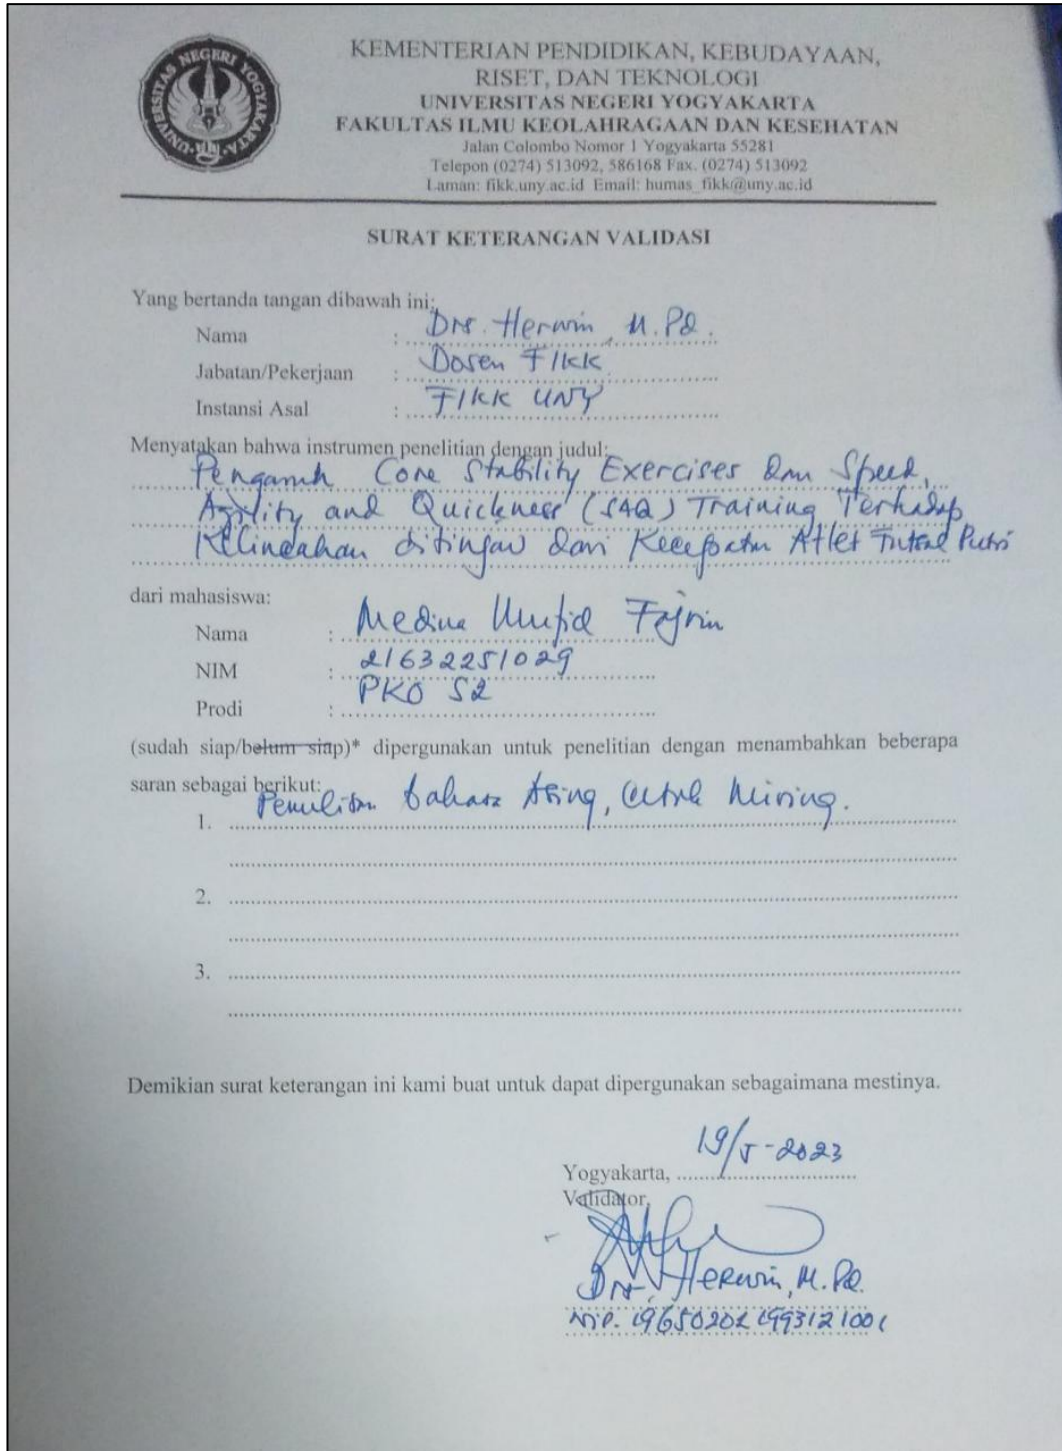 UNIVERSITAS NEGERI YOGYAKARTA
KEMENTERIAN PENDIDIKAN, KEBUDAYAAN,
RISET, DAN TEKNOLOGI
UNIVERSITAS NEGERI YOGYAKARTA
FAKULTAS ILMU KEOLAHRAGAAN DAN KESEHATAN
Jalan Colombo Nomor 1 Yogyakarta 55281
Telepon (0274) 513092, 586168 Fax. (0274) 513092
Laman: fikk.uny.ac.id Email: humas_fikk@uny.ac.id
SURAT KETERANGAN VALIDASI
Yang bertanda tangan dibawah ini:
Nama : Drs. Herwin, M.Pd.
Jabatan/Pekerjaan : Dosen FIKK
Instansi Asal : FIKK UNY
Menyatakan bahwa instrumen penelitian dengan judul:
Pengaruh Core Stability Exercises dan Speed,
Agility and Quickness (SAQ) Training Terhadap
Kelincahan ditinjau dari Kecepatan Atlet Futsal Putri
dari mahasiswa:
Nama : Medina Mufid Fajrin
NIM : 21632251029
Prodi : PKO S2
(sudah siap/belum siap)* dipergunakan untuk penelitian dengan menambahkan beberapa
saran sebagai berikut:
1. Penulisan bahasa Asing, cetak Miring.
2.
3.
Demikian surat keterangan ini kami buat untuk dapat dipergunakan sebagaimana mestinya.
Yogyakarta, 19/5-2023
Validator,
Drs. Herwin, M.Pd.
NIP. 196502021993121001